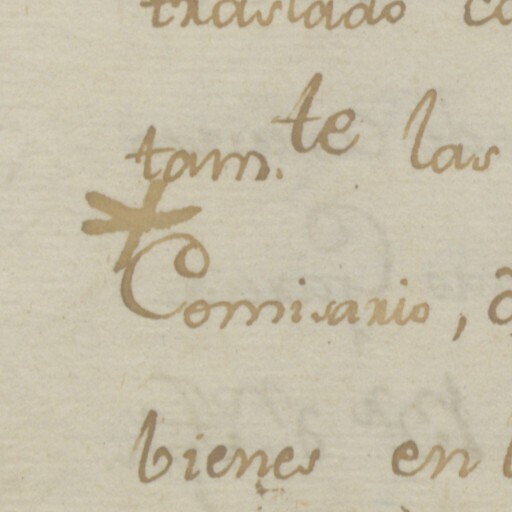 traslado
tam.te las
Comisario,
bienes en